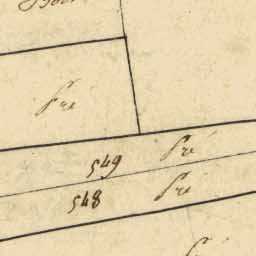 Pré
549 Pré
548 Pré